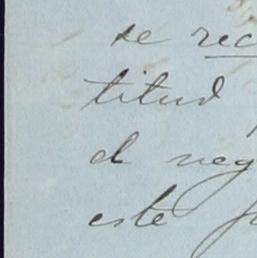 se rec
titud
el neg
este